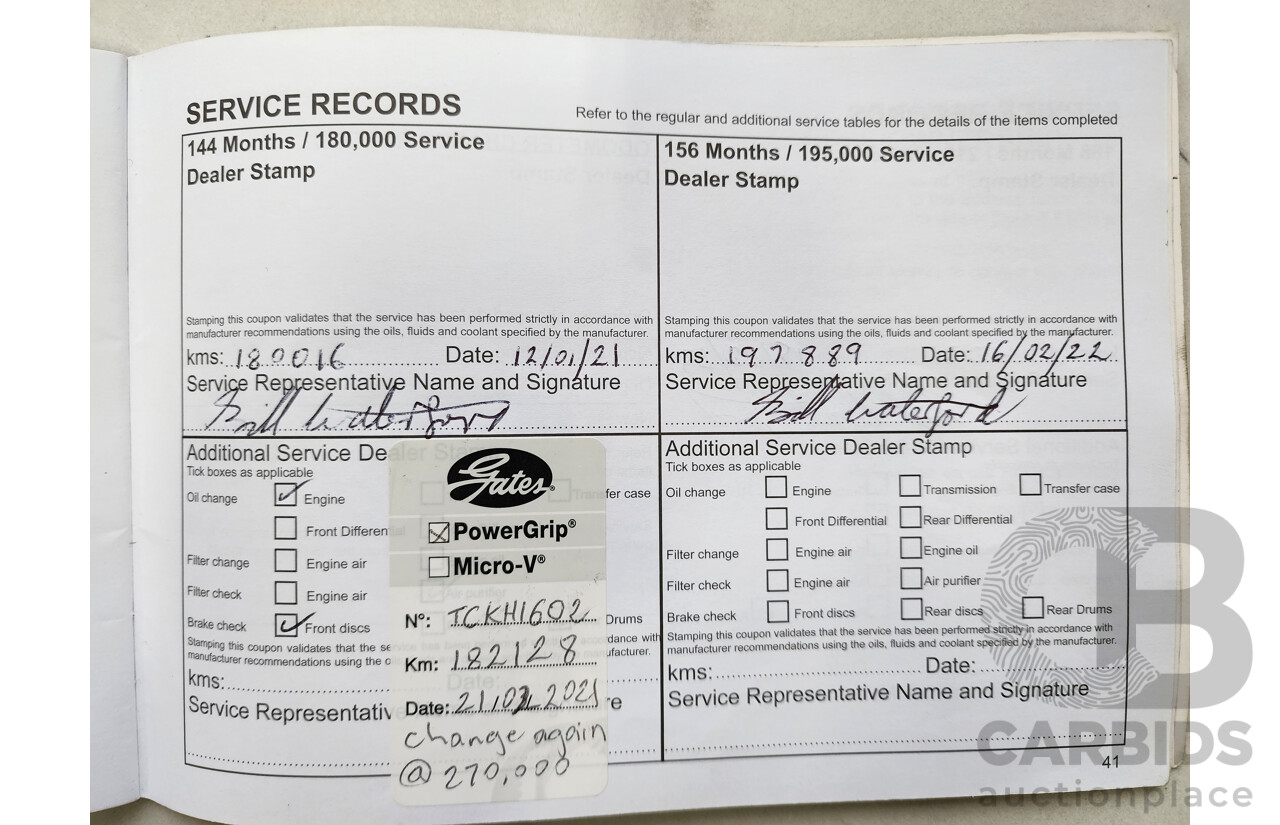 SERVICE RECORDS
Refer to the regular and additional service tables for the details of the items completed
144 Months / 180,000 Service
Dealer Stamp
Stamping this coupon validates that the service has been performed strictly in accordance with
manufacturer recommendations using the oils, fluids and coolant specified by the manufacturer.
kms: 180016 Date: 12/01/21
Service Representative Name and Signature
Bill Waterford
Additional Service Dealer Stamp
Tick boxes as applicable
Oil change Engine Transfer case
Front Differen
Filter change Engine air
Filter check Engine air Air purifier
Brake check Front discs Drums
Stamping this coupon validates that the se rdance with
manufacturer recommendations using the o ufacturer.
kms: Date:
Service Representativ re
Gates®
PowerGrip®
Micro-V®
Nº: TCKH1602
Km: 182128
Date: 21/02/2021
change again
@ 270,000
156 Months / 195,000 Service
Dealer Stamp
Stamping this coupon validates that the service has been performed strictly in accordance with
manufacturer recommendations using the oils, fluids and coolant specified by the manufacturer.
kms: 197889 Date: 16/02/22
Service Representative Name and Signature
Bill Waterford
Additional Service Dealer Stamp
Tick boxes as applicable
Oil change Engine Transmission Transfer case
Front Differential Rear Differential
Filter change Engine air Engine oil
Filter check Engine air Air purifier
Brake check Front discs Rear discs Rear Drums
Stamping this coupon validates that the service has been performed strictly in accordance with
manufacturer recommendations using the oils, fluids and coolant specified by the manufacturer.
kms: Date:
Service Representative Name and Signature
41
CB
CARBIDS
auctionplace